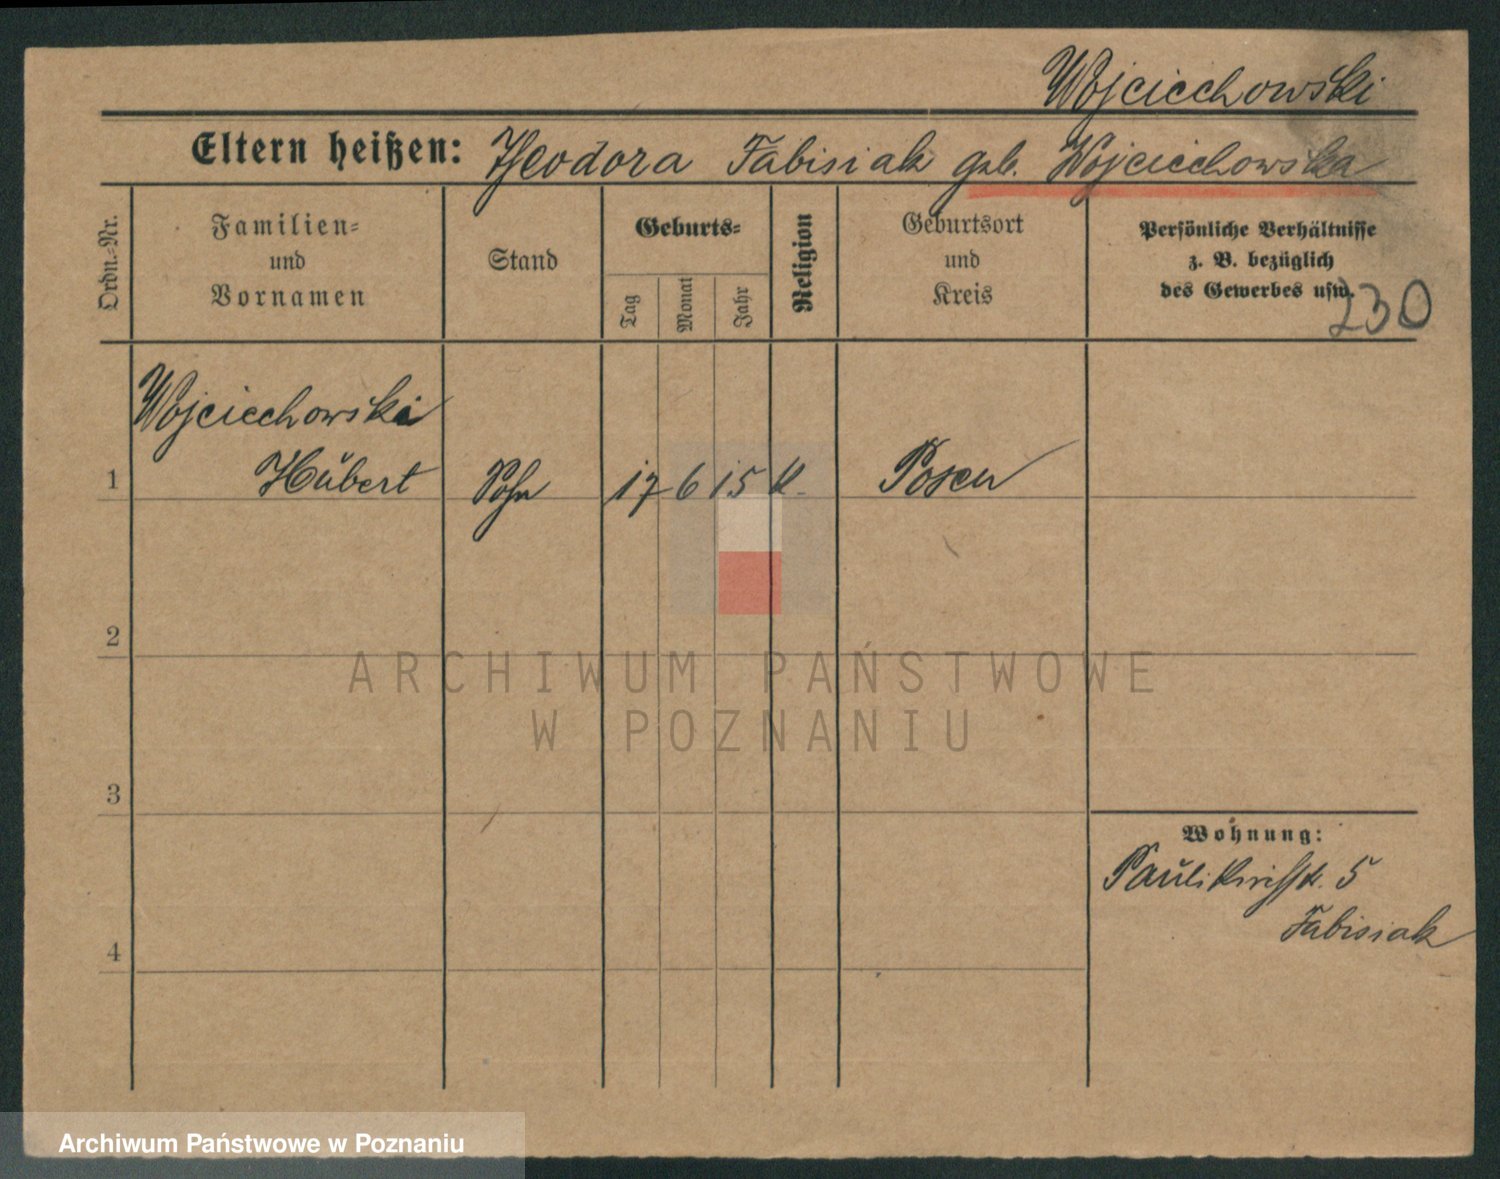 Wojciechowski
Eltern heißen: Theodora Fabisiak geb. Wojciechowska
Ordn.-Nr.
Familien=
und
Vornamen
Stand
Geburts=
Tag
Monat
Jahr
Religion
Geburtsort
und
Kreis
Persönliche Verhältnisse
z. B. bezüglich
des Gewerbes usw.
230
Wojciechowski
1 Hubert Sohn 17 6 15 K. Posen
2
ARCHIWUM PAŃSTWOWE
W POZNANIU
3
Wohnung:
Paulikirchstr. 5
Fabisiak
4
Archiwum Państwowe w Poznaniu